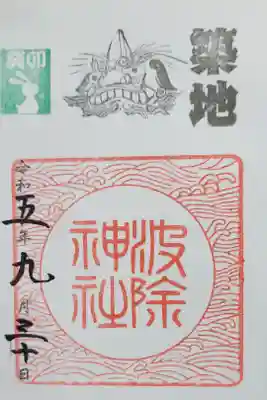 築地
癸卯
波除
神社
令和五年九月三十日